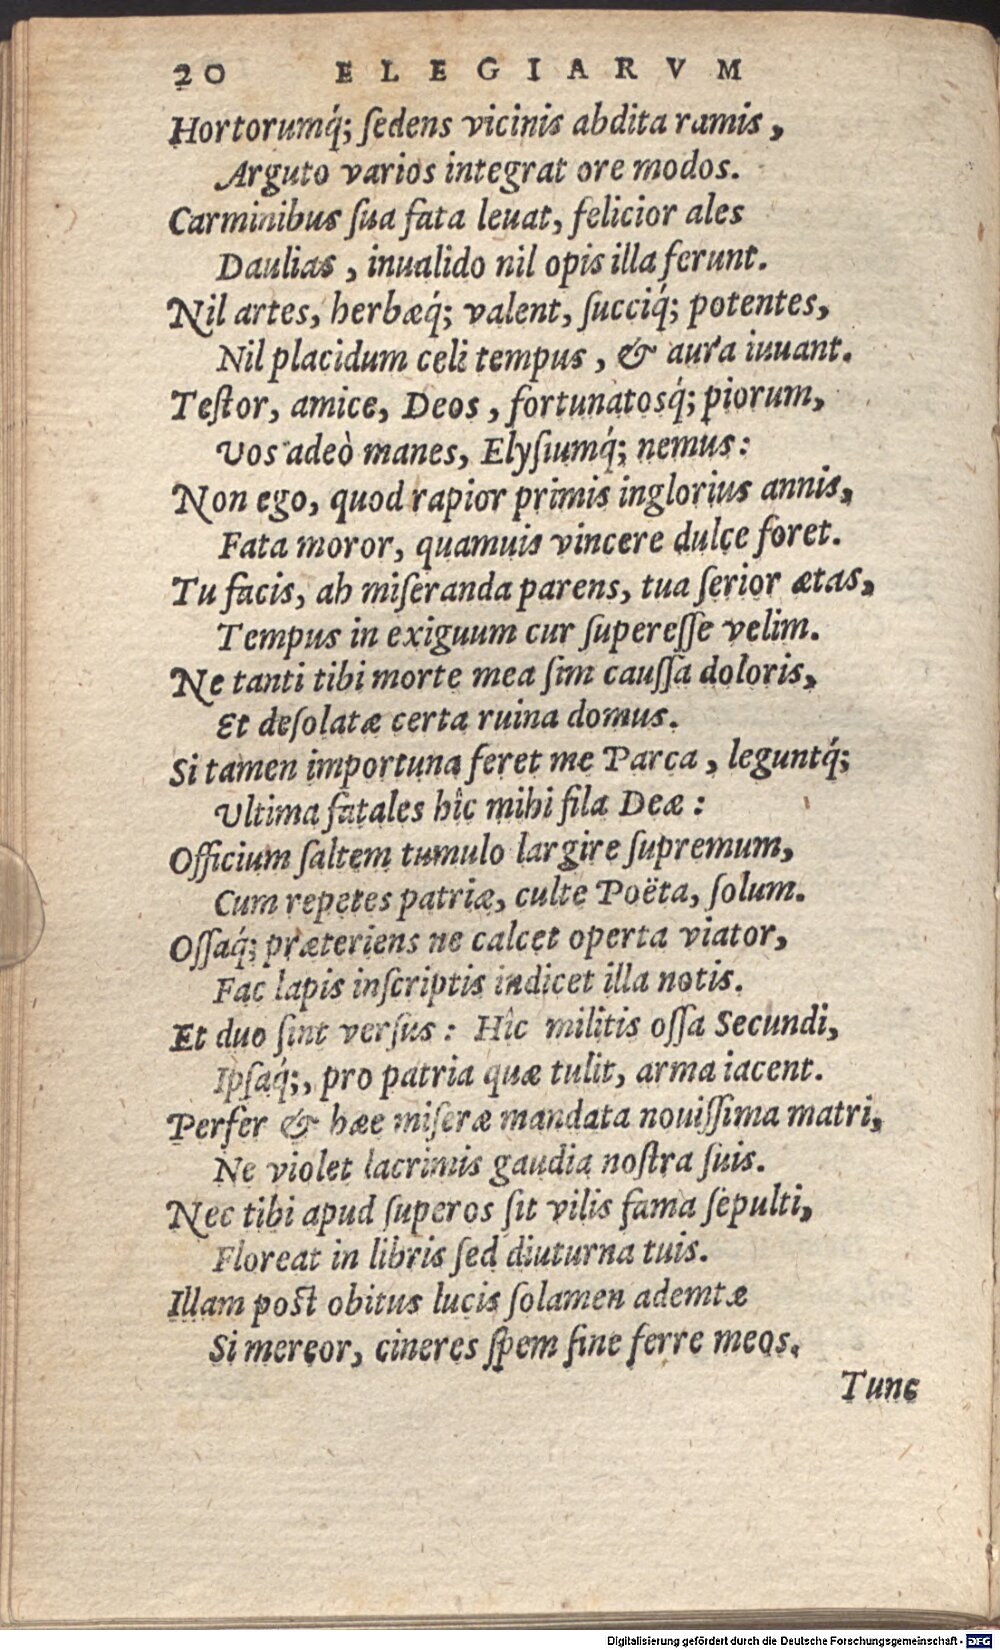 20 ELEGIARVM
Hortorumq́; ſedens vicinis abdita ramis,
Arguto varios integrat ore modos.
Carminibus ſua fata leuat, felicior ales
Daulias, inualido nil opis illa ferunt.
Nil artes, herbæq́; valent, ſucciq́; potentes,
Nil placidum celi tempus, & aura iuuant.
Teſtor, amice, Deos, fortunatosq́; piorum,
Vos adeò manes, Elyſiumq́; nemus:
Non ego, quod rapior primis inglorius annis,
Fata moror, quamuis vincere dulce foret.
Tu facis, ah miſeranda parens, tua ſerior ætas,
Tempus in exiguum cur ſupereſſe velim.
Ne tanti tibi morte mea ſim cauſſa doloris,
Et deſolatæ certa ruina domus.
Si tamen importuna feret me Parca, leguntq́;
Ultima fatales hîc mihi fila Deæ:
Officium ſaltem tumulo largire ſupremum,
Cum repetes patriæ, culte Poëta, ſolum.
Oſſaq́; præteriens ne calcet operta viator,
Fac lapis inſcriptis indicet illa notis.
Et duo ſint verſus: Hîc militis oſſa Secundi,
Ipſaq́;, pro patria quæ tulit, arma iacent.
Perfer & hæe miſeræ mandata nouiſſima matri,
Ne violet lacrimis gaudia noſtra ſuis.
Nec tibi apud ſuperos ſit vilis fama ſepulti,
Floreat in libris ſed diuturna tuis.
Illam poſt obitus lucis ſolamen ademtæ
Si mereor, cineres ſpem ſine ferre meos.
Tunc
Digitalisierung gefördert durch die Deutsche Forschungsgemeinschaft - DFG